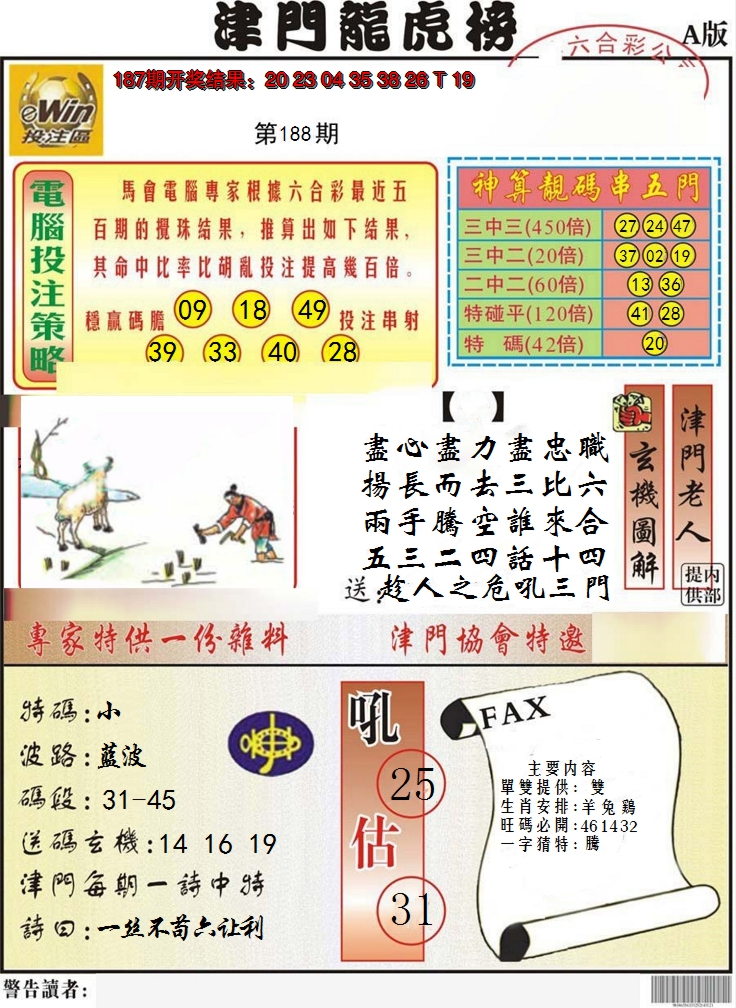 津門龍虎榜
A版
六合彩公
187期开奖结果：20 23 04 35 38 26 T 19
eWin
投注區
第188期
電腦投注策略
馬會電腦專家根據六合彩最近五
百期的攪珠结果，推算出如下结果，
其命中比率比胡亂投注提高幾百倍。
穩贏碼膽 09 18 49 投注串射
39 33 40 28
神算靚碼串五門
三中三(450倍) 27 24 47
三中二(20倍) 37 02 19
二中二(60倍) 13 36
特碰平(120倍) 41 28
特 碼(42倍) 20
【 】
盡心盡力盡忠職
揚長而去三比六
兩手騰空誰來合
五三二四話十四
送:趁人之危吼三門
玄機圖解
津門老人
内部提供
專家特供一份雜料
津門協會特邀
特碼:小
波路:藍波
碼段:31-45
送碼玄機:14 16 19
津門每期一詩中特
詩曰:一丝不苟六让利
吼 25
估 31
FAX
主要内容
單雙提供：雙
生肖安排:羊兔鷄
旺碼必開:461432
一字猜特：騰
警告讀者：